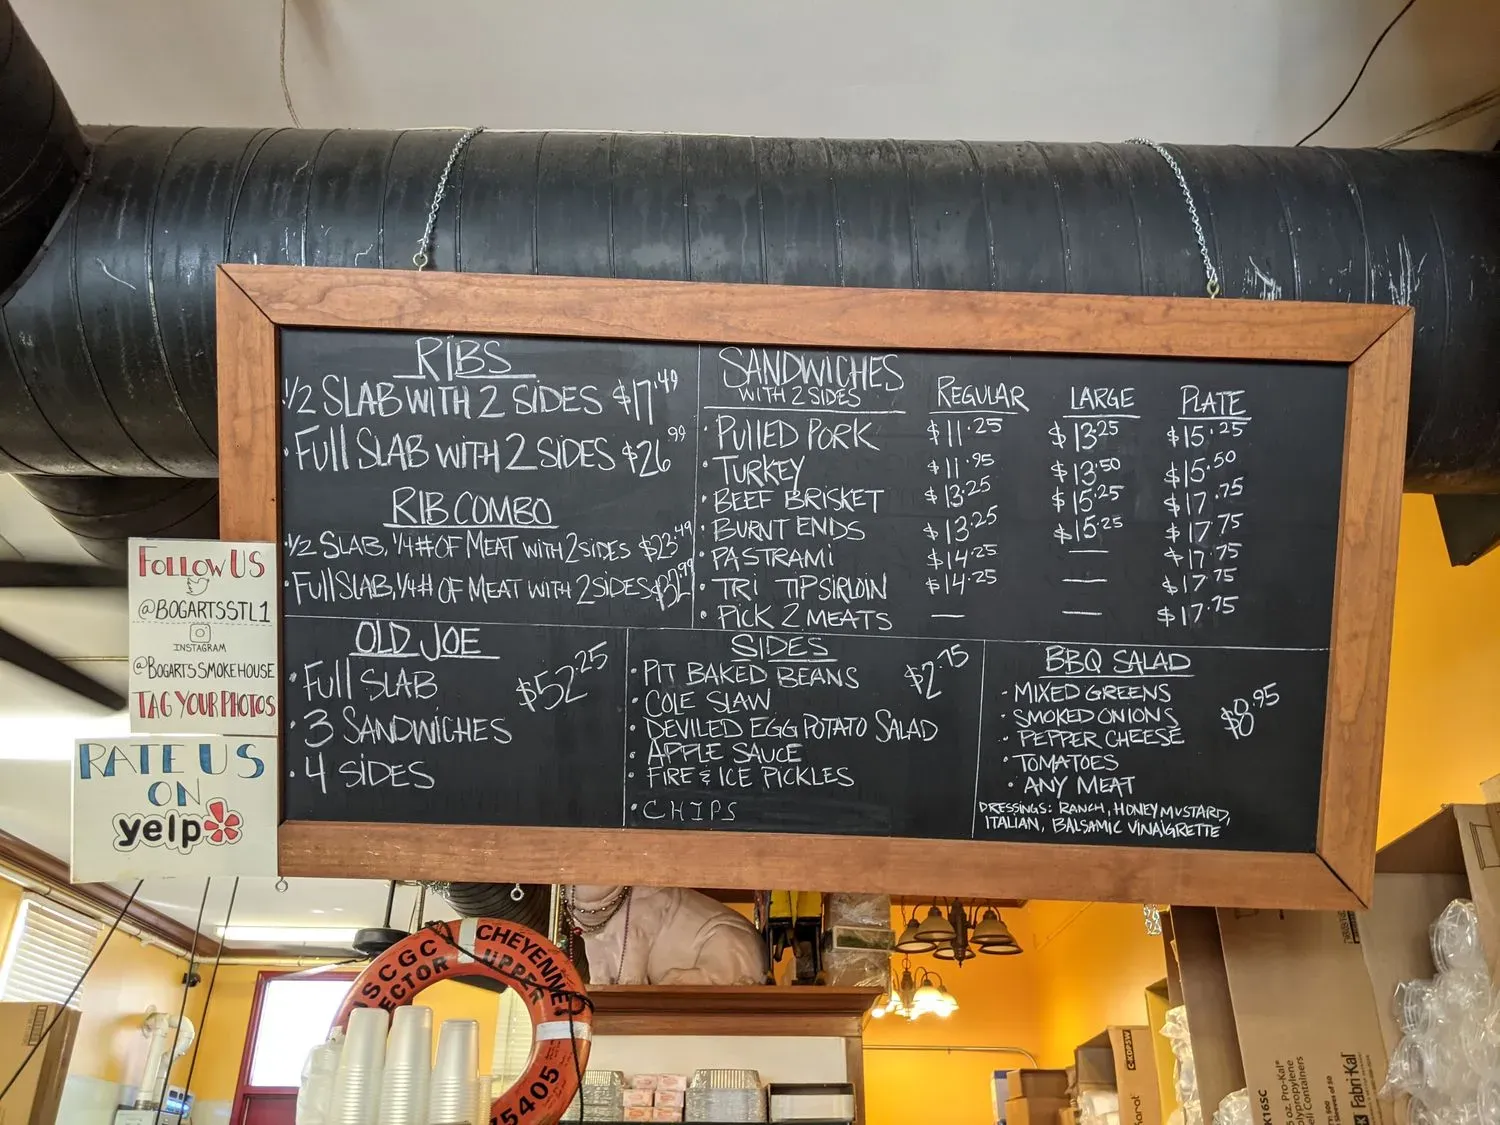 RIBS
1/2 SLAB WITH 2 SIDES $17.49
• FULL SLAB WITH 2 SIDES $26.99
RIB COMBO
• 1/2 SLAB, 1/4# OF MEAT WITH 2 SIDES $23.49
• FULL SLAB, 1/4# OF MEAT WITH 2 SIDES $32.99
SANDWICHES REGULAR LARGE PLATE
WITH 2 SIDES
• PULLED PORK $11.25 $13.25 $15.25
• TURKEY $11.95 $13.50 $15.50
• BEEF BRISKET $13.25 $15.25 $17.75
• BURNT ENDS $13.25 $15.25 $17.75
• PASTRAMI $14.25 — $17.75
• TRI TIP SIRLOIN $14.25 — $17.75
• PICK 2 MEATS — — $17.75
OLD JOE
• FULL SLAB $52.25
• 3 SANDWICHES
• 4 SIDES
SIDES
• PIT BAKED BEANS $2.75
• COLE SLAW
• DEVILED EGG POTATO SALAD
• APPLE SAUCE
• FIRE & ICE PICKLES
• CHIPS
BBQ SALAD
• MIXED GREENS
• SMOKED ONIONS $8.95
• PEPPER CHEESE
• TOMATOES
• ANY MEAT
DRESSINGS: RANCH, HONEY MUSTARD,
ITALIAN, BALSAMIC VINAIGRETTE
FOLLOW US
@BOGARTSSTL1
INSTAGRAM
@BOGARTSSMOKEHOUSE
TAG YOUR PHOTOS
RATE US
ON
yelp
USCGC CHEYENNE
SECTOR UPPER
75405
Fabri-Kal